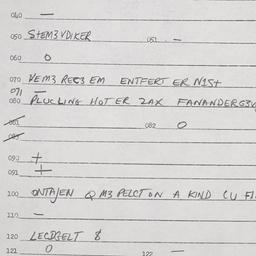 040 —
050 STEM3VDIKER 051 . —
060 O
070 VEM3 REC3 EM ENTFERT ER NIST
071 —
080 PLUCLING HOTER ZAX FANANDERG3V
081 082 O
083
090 +
091 +
100 ONTAJEN Q M3 PELCT ON A KIND CU FI
110 —
120 LECDGELT 8
121 O 122 —